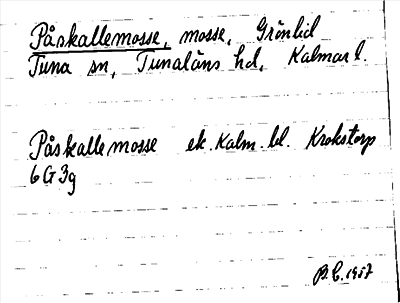 Påskallemosse, mosse, Grönlid
Tuna sn, Tunaläns hd, Kalmar l.
Påskallemosse ek. Kalm. bl. Krokstorp
6G3g
B.C. 1957